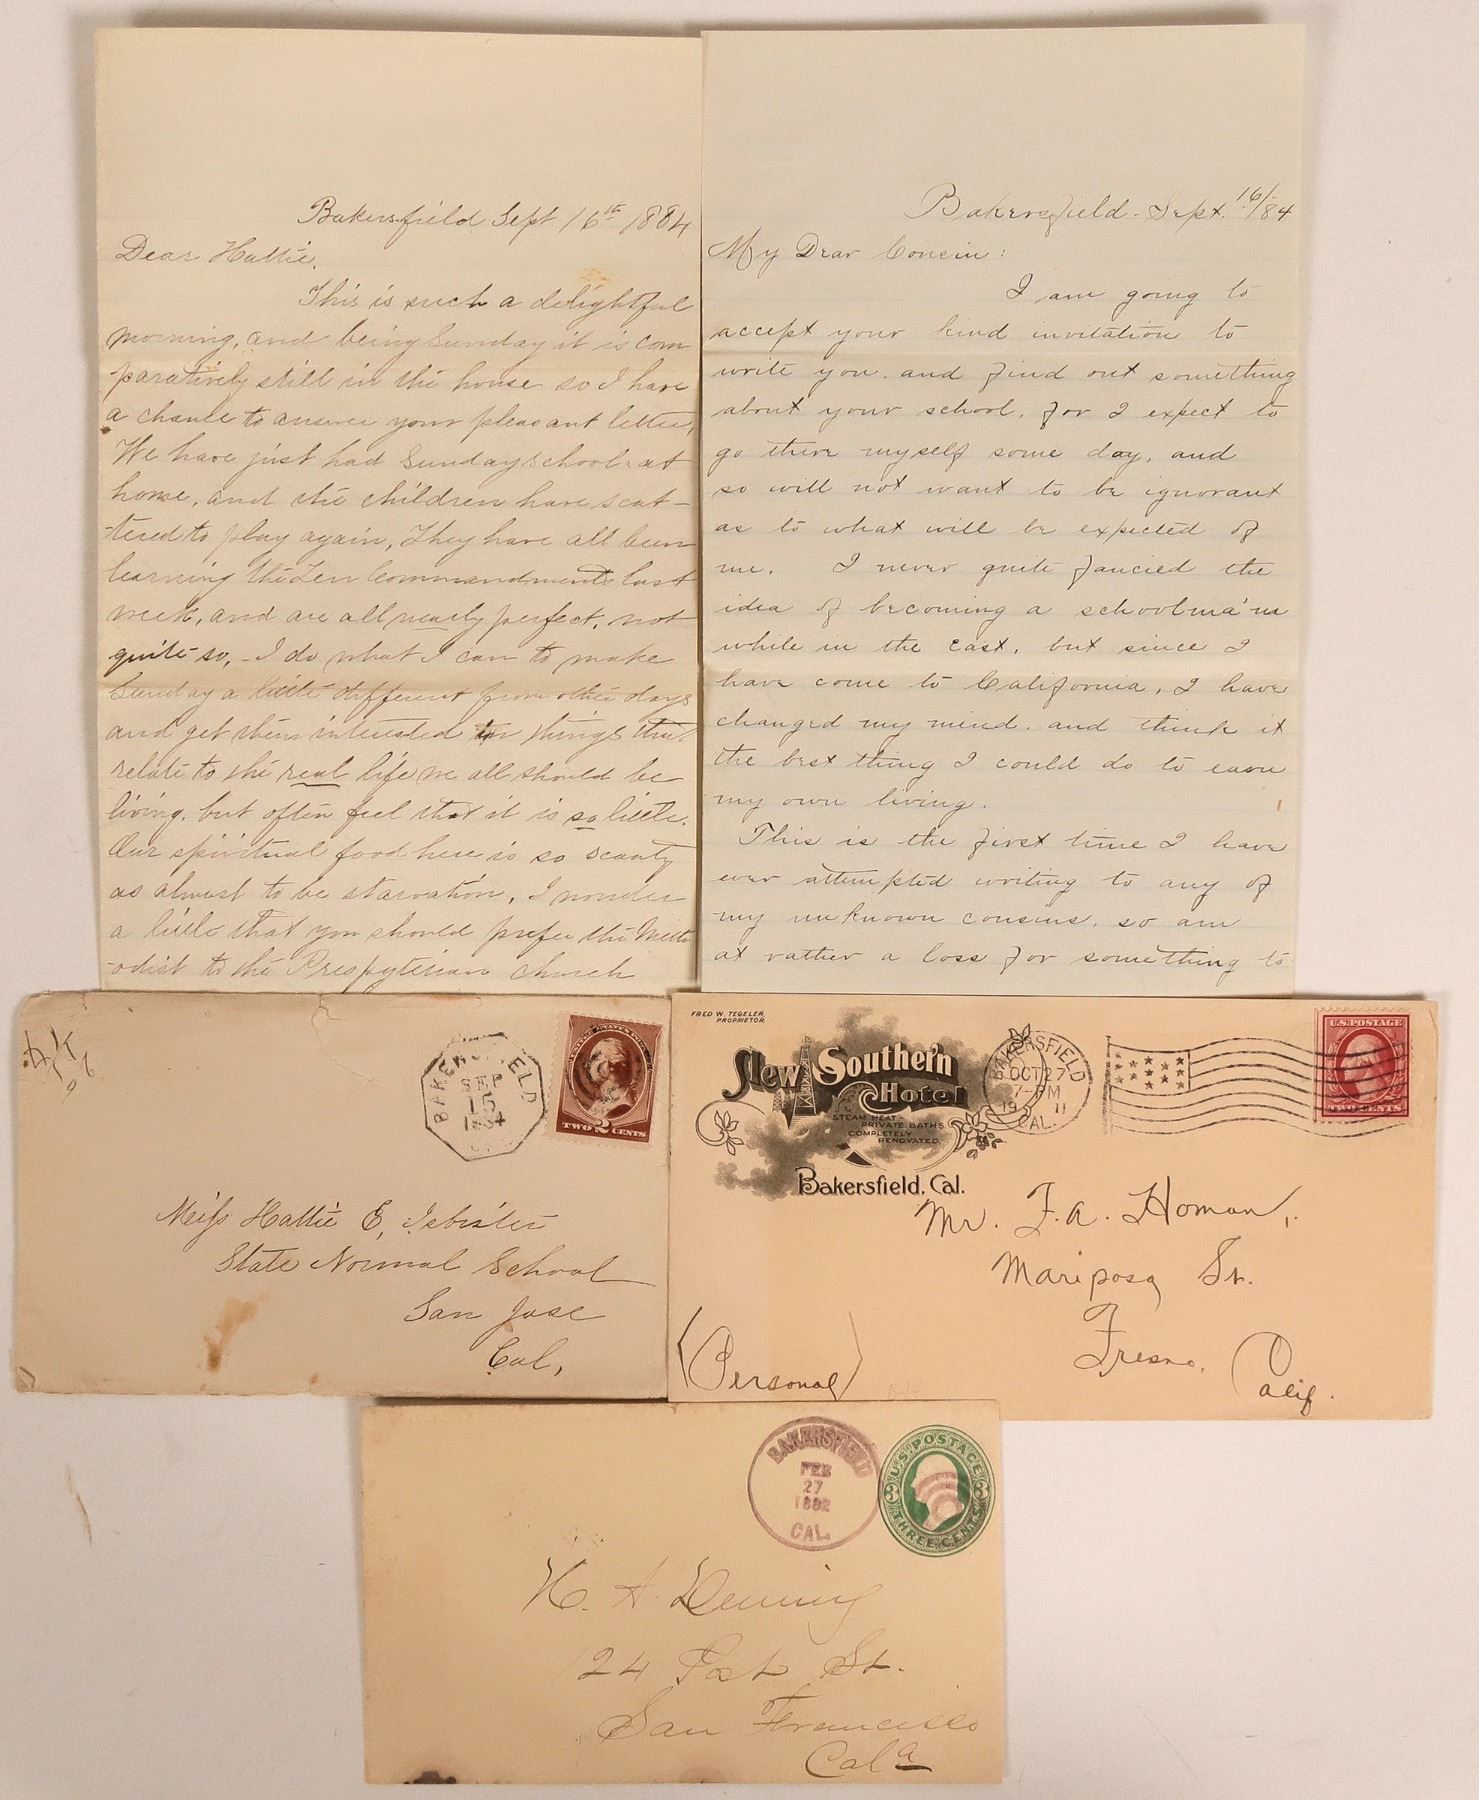 Bakersfield Sept 16th 1884
Dear Hattie.
This is such a delightful
morning, and being Sunday it is com
paratively still in the house so I have
a chance to answer your pleasant letter,
We have just had Sunday school at
home, and the children have scat-
tered to play again, They have all been
learning the Ten Commandments last
week, and are all nearly perfect, not
quite so, - I do what I can to make
Sunday a little different from other days
and get them interested in things that
relate to the real life we all should be
living, but often feel that it is so little.
Our spiritual food here is so scanty
as almost to be starvation, I wonder
a little that you should prefer the Meth
-odist to the Presbyterian church
Bakersfield - Sept. 16/84
My Dear Cousin:
I am going to
accept your kind invitation to
write you, and find out something
about your school, for I expect to
go there myself some day, and
so will not want to be ignorant
as to what will be expected of
me. I never quite fancied the
idea of becoming a schoolma'm
while in the east, but since I
have come to California, I have
changed my mind, and think it
the best thing I could do to earn
my own living.
This is the first time I have
ever attempted writing to any of
my unknown cousins, so am
at rather a loss for something to
BAKERSFIELD
SEP
1884
TWO 2 CENTS
Miss Hattie E, Isbister
State Normal School
San Jose
Cal,
FRED W. TEGELER,
PROPRIETOR.
New Southern
Hotel
STEAM HEAT -
PRIVATE BATHS
COMPLETELY
RENOVATED.
Bakersfield, Cal.
BAKERSFIELD
OCT 27
7-PM
19 11
CAL.
U.S. POSTAGE
TWO CENTS
Mr. F. A. Homan,
Mariposa St.
Fresno,
Calif.
(Personal)
BAKERSFIELD
FEB
27
1882
CAL.
U.S. POSTAGE
3 3
THREE CENTS
H. A. Deming
124 Post St.
San Francisco
Cala